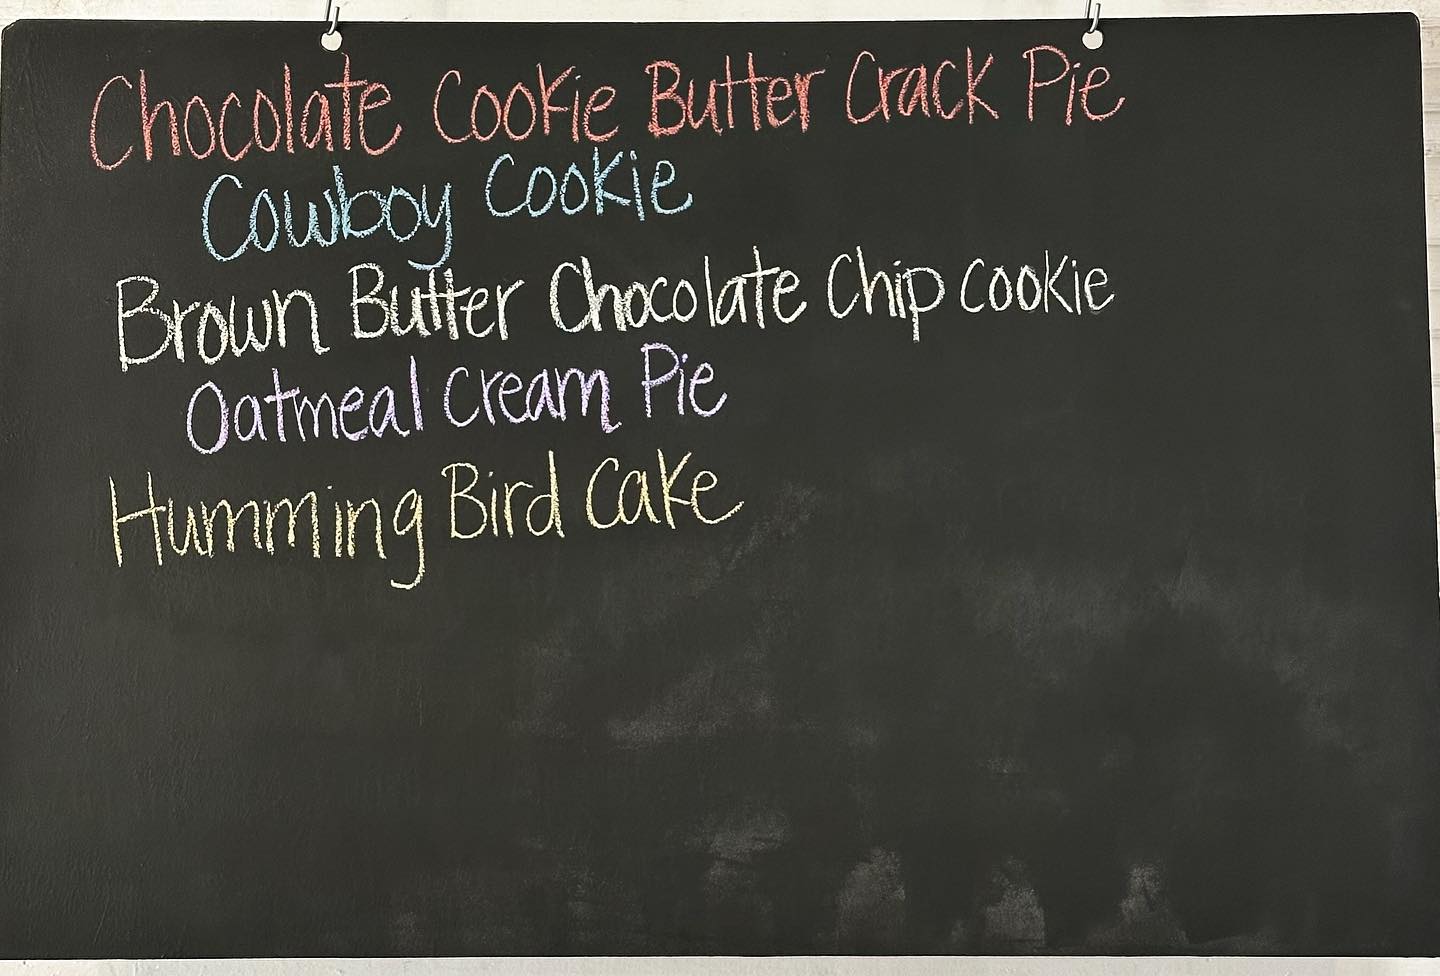 Chocolate Cookie Butter Crack Pie
Cowboy Cookie
Brown Butter Chocolate Chip Cookie
Oatmeal Cream Pie
Humming Bird Cake